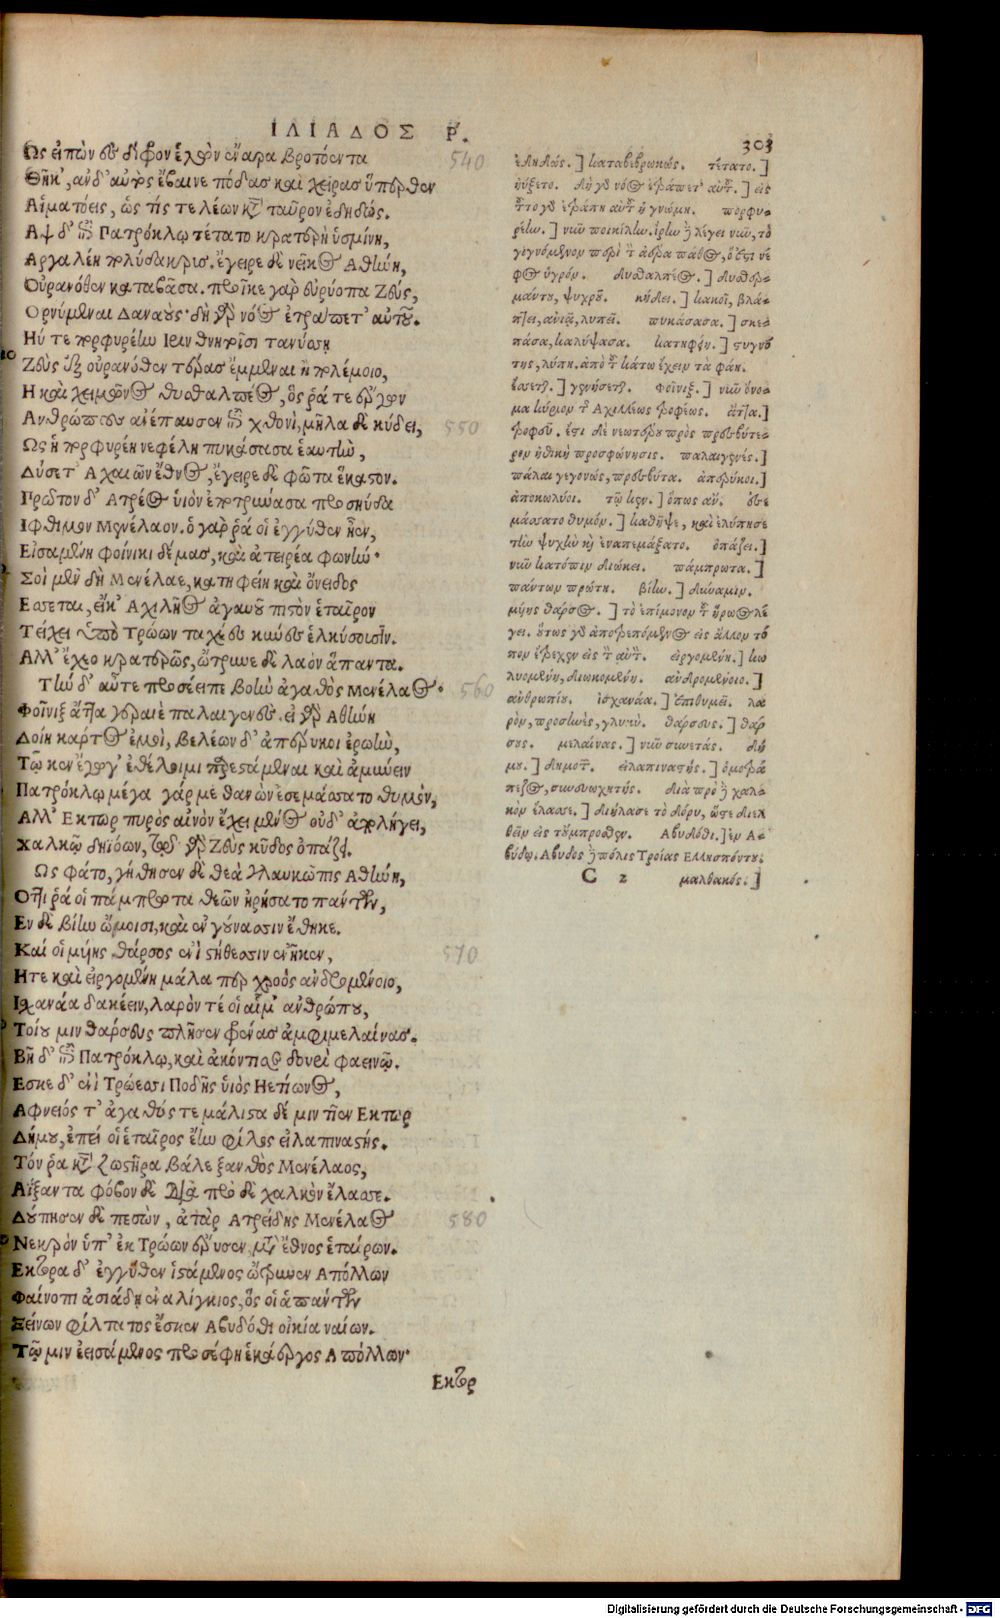 ΙΛΙΑΔΟΣ Ρ.
303
Ως εἰπὼν ἐς δίφρον ἑλὼν ἔναρα βροτόεντα
540
Θῆκ', ἀν δ' αὐτὸς ἔβαινε πόδας καὶ χεῖρας ὕπερθεν
Αἱματόεις, ὥς τίς τε λέων κατὰ ταῦρον ἐδηδώς.
Αψ δ' ἐπὶ Πατρόκλῳ τέτατο κρατερὴ ὑσμίνη,
Αργαλέη πολύδακρις. ἔγειρε δὲ νεῖκος Αθήνη,
Οὐρανόθεν καταβᾶσα. προῆκε γαρ εὐρύοπα Ζεὺς,
Ορνύμεναι Δαναούς· δὴ γὰρ νόος ἐτράπετ' αὐτοῦ.
Ηΰτε πορφυρέην ἶριν θνητοῖσι τανύσῃ
Ζεὺς ἐξ οὐρανόθεν τέρας ἔμμεναι ἢ πολέμοιο,
Η καὶ χειμῶνος δυσθαλπέος, ὅς ῥά τε ἔργων
Ανθρώπους ἀνέπαυσεν ἐπὶ χθονὶ, μῆλα δὲ κήδει,
550
Ως ἡ πορφυρέῃ νεφέλῃ πυκάσασα ἑαυτὴν,
Δύσετ' Αχαιῶν ἔθνος, ἔγειρε δὲ φῶτα ἕκαστον.
Πρῶτον δ' Ατρέος υἱὸν ἐποτρύνασα προσηύδα
Ιφθιμον Μενέλαον. ὁ γαρ ῥά οἱ ἐγγύθεν ἦεν,
Εἰσαμένη φοίνικι δέμας, καὶ ἀτειρέα φωνήν·
Σοὶ μὲν δὴ Μενέλαε, κατηφείη καὶ ὄνειδος
Εσσεται, εἴκ' Αχιλῆος ἀγαυοῦ πιστὸν ἑταῖρον
Τείχει ὑπὸ Τρώων ταχέες κύνες ἑλκύσουσιν.
Αλλ' ἔχεο κρατερῶς, ὤτρυνε δὲ λαὸν ἅπαντα.
Τὴν δ' αὖτε προσέειπε βοὴν ἀγαθὸς Μενέλαος·
560
Φοῖνιξ ἄττα γεραιὲ παλαιγενές. εἰ γὰρ Αθήνη
Δοίη κάρτος ἐμοὶ, βελέων δ' ἀπερύκοι ἐρωὴν,
Τῷ κεν ἔγωγ' ἐθέλοιμι παρεστάμεναι καὶ ἀμύνειν
Πατρόκλῳ μέγα γάρ με θανὼν ἐσεμάσσατο θυμὸν,
Αλλ' Εκτωρ πυρὸς αἰνὸν ἔχει μένος οὐδ' ἀπολήγει,
χαλκῷ δηϊόων, τῷδε γὰρ Ζεὺς κῦδος ὀπάζει.
Ως φάτο, γήθησεν δὲ θεὰ γλαυκῶπις Αθήνη,
Οττι ῥά οἱ πάμπρωτα θεῶν ἠρήσατο πάντων,
Εν δὲ βίην ὤμοισι, καὶ ἐν γούνασσιν ἔθηκε.
Καί οἱ μυίης θάρσος ἐνὶ στήθεσσιν ἐνῆκεν,
570
Ητε καὶ εἰργομένη μάλα περ χροὸς ἀνδρομένοιο,
Ιχανάα δακέειν, λαρὸν τέ οἱ αἷμ' ἀνθρώπου,
Τοίου μιν θάρσευς πλῆσεν φρένας ἀμφιμελαίνας.
Βῆ δ' ἐπὶ Πατρόκλῳ, καὶ ἀκόντισε δουρὶ φαεινῷ.
Εσκε δ' ἐνὶ Τρώεσσι Ποδῆς υἱὸς Ηετίωνος,
Αφνειός τ' ἀγαθός τε μάλιστα δέ μιν τῖεν Εκτωρ
Δήμου, ἐπεί οἱ ἑταῖρος ἔην φίλος εἰλαπιναστής.
Τόν ῥα κατὰ ζωστῆρα βάλε ξανθὸς Μενέλαος,
Αΐξαντα φόβον δὲ διὰ πρὸ δὲ χαλκὸν ἔλασσε.
Δούπησεν δὲ πεσὼν, ἀτὰρ Ατρείδης Μενέλαος
580
Νεκρὸν ὑπ' ἐκ Τρώων ἔρυσεν, μετὰ ἔθνος ἑταίρων.
Εκτορα δ' ἐγγύθεν ἱστάμενος ὤτρυνεν Απόλλων
Φαίνοπι ἀσιάδῃ ἐναλίγκιος, ὅς οἱ ἁπάντων
Ξείνων φίλτατος ἔσκεν Αβυδόθι οἰκία ναίων.
Τῷ μιν ἐεισάμενος προσέφη ἑκάεργος Απόλλων·
Εκτωρ
ἐδηδώς. ] καταβεβρωκώς. τέτατο. ]
ηὔξετο. δὴ γὰρ νόος ἐτράπετ' αὐτοῦ. ] εἰς
τοῦτο γὰρ ἐτράπη αὐτοῦ ἡ γνώμη. πορφυ-
ρέην. ] νῦν ποικίλην. ἶριν δὲ λέγει νῦν, τὸ
γεγνόμενον περὶ τὸν ἀέρα πάθος, ὅ ἐστι νέ
φος ὑγρόν. δυσθαλπέος. ] δυσθερ-
μάντου, ψυχροῦ. κήδει. ] κακοῖ, βλά-
πτει, ἀνιᾷ, λυπεῖ. πυκάσασα. ] σκε-
πάσα, καλύψασα. κατηφείη. ] στυγνό
της, λύπη. ἀπὸ τοῦ κάτω ἔχειν τὰ φάη.
ἔσσεται. ] γενήσεται. φοῖνιξ. ] νῦν ὄνο-
μα κύριον τοῦ Αχιλλέως τροφέως. ἄττα. ]
τροφεῦ. ἔστι δὲ νεωτέρου πρὸς πρεσβύτε-
ρον ἠθικὴ προσφώνησις. παλαιγενές. ]
πάλαι γεγονώς, πρεσβύτα. ἀπερύκοι. ]
ἀποκωλύοι. τῷ κεν. ] ὅπως ἄν. ἐσε-
μάσσατο θυμόν. ] καθῆψε, καὶ ἐλύπησε
τὴν ψυχὴν καὶ ἐναπεμάξατο. ὀπάζει. ]
νῦν κατόπιν διώκει. πάμπρωτα. ]
πάντων πρώτη. βίην. ] δύναμιν.
μυίης θάρσος. ] τὸ ἐπίμονον τοῦ ἥρωος λέ
γει. οὕτως γὰρ ἀποτρεπόμενος εἰς ἄλλον τό
πον ἔτρεχεν εἰς τὸν αὐτόν. εἰργομένη. ] κω
λυομένη, διωκομένη. ἀνδρομένοιο. ]
ἀνθρωπίου. ἰσχανάα. ] ἐπιθυμεῖ. λα
ρὸν, προσηνὲς, γλυκύ. θάρσευς. ] θάρ
σους. μελαίνας. ] νῦν συνετάς. δή
μου. ] δημότου. εἰλαπιναστής. ] ὁμοτρά
πεζος, συνευωχητής. διὰ πρὸ δὲ χαλ-
κὸν ἔλασσε. ] διήλασε τὸ δόρυ, ὥστε διελ
θεῖν εἰς τοὔμπροσθεν. Αβυδόθι. ] ἐν Α-
βύδῳ. Αβυδος δὲ πόλις Τροίας Ελλησπόντου.
C 2 μαλθακός. ]
Digitalisierung gefördert durch die Deutsche Forschungsgemeinschaft - DFG